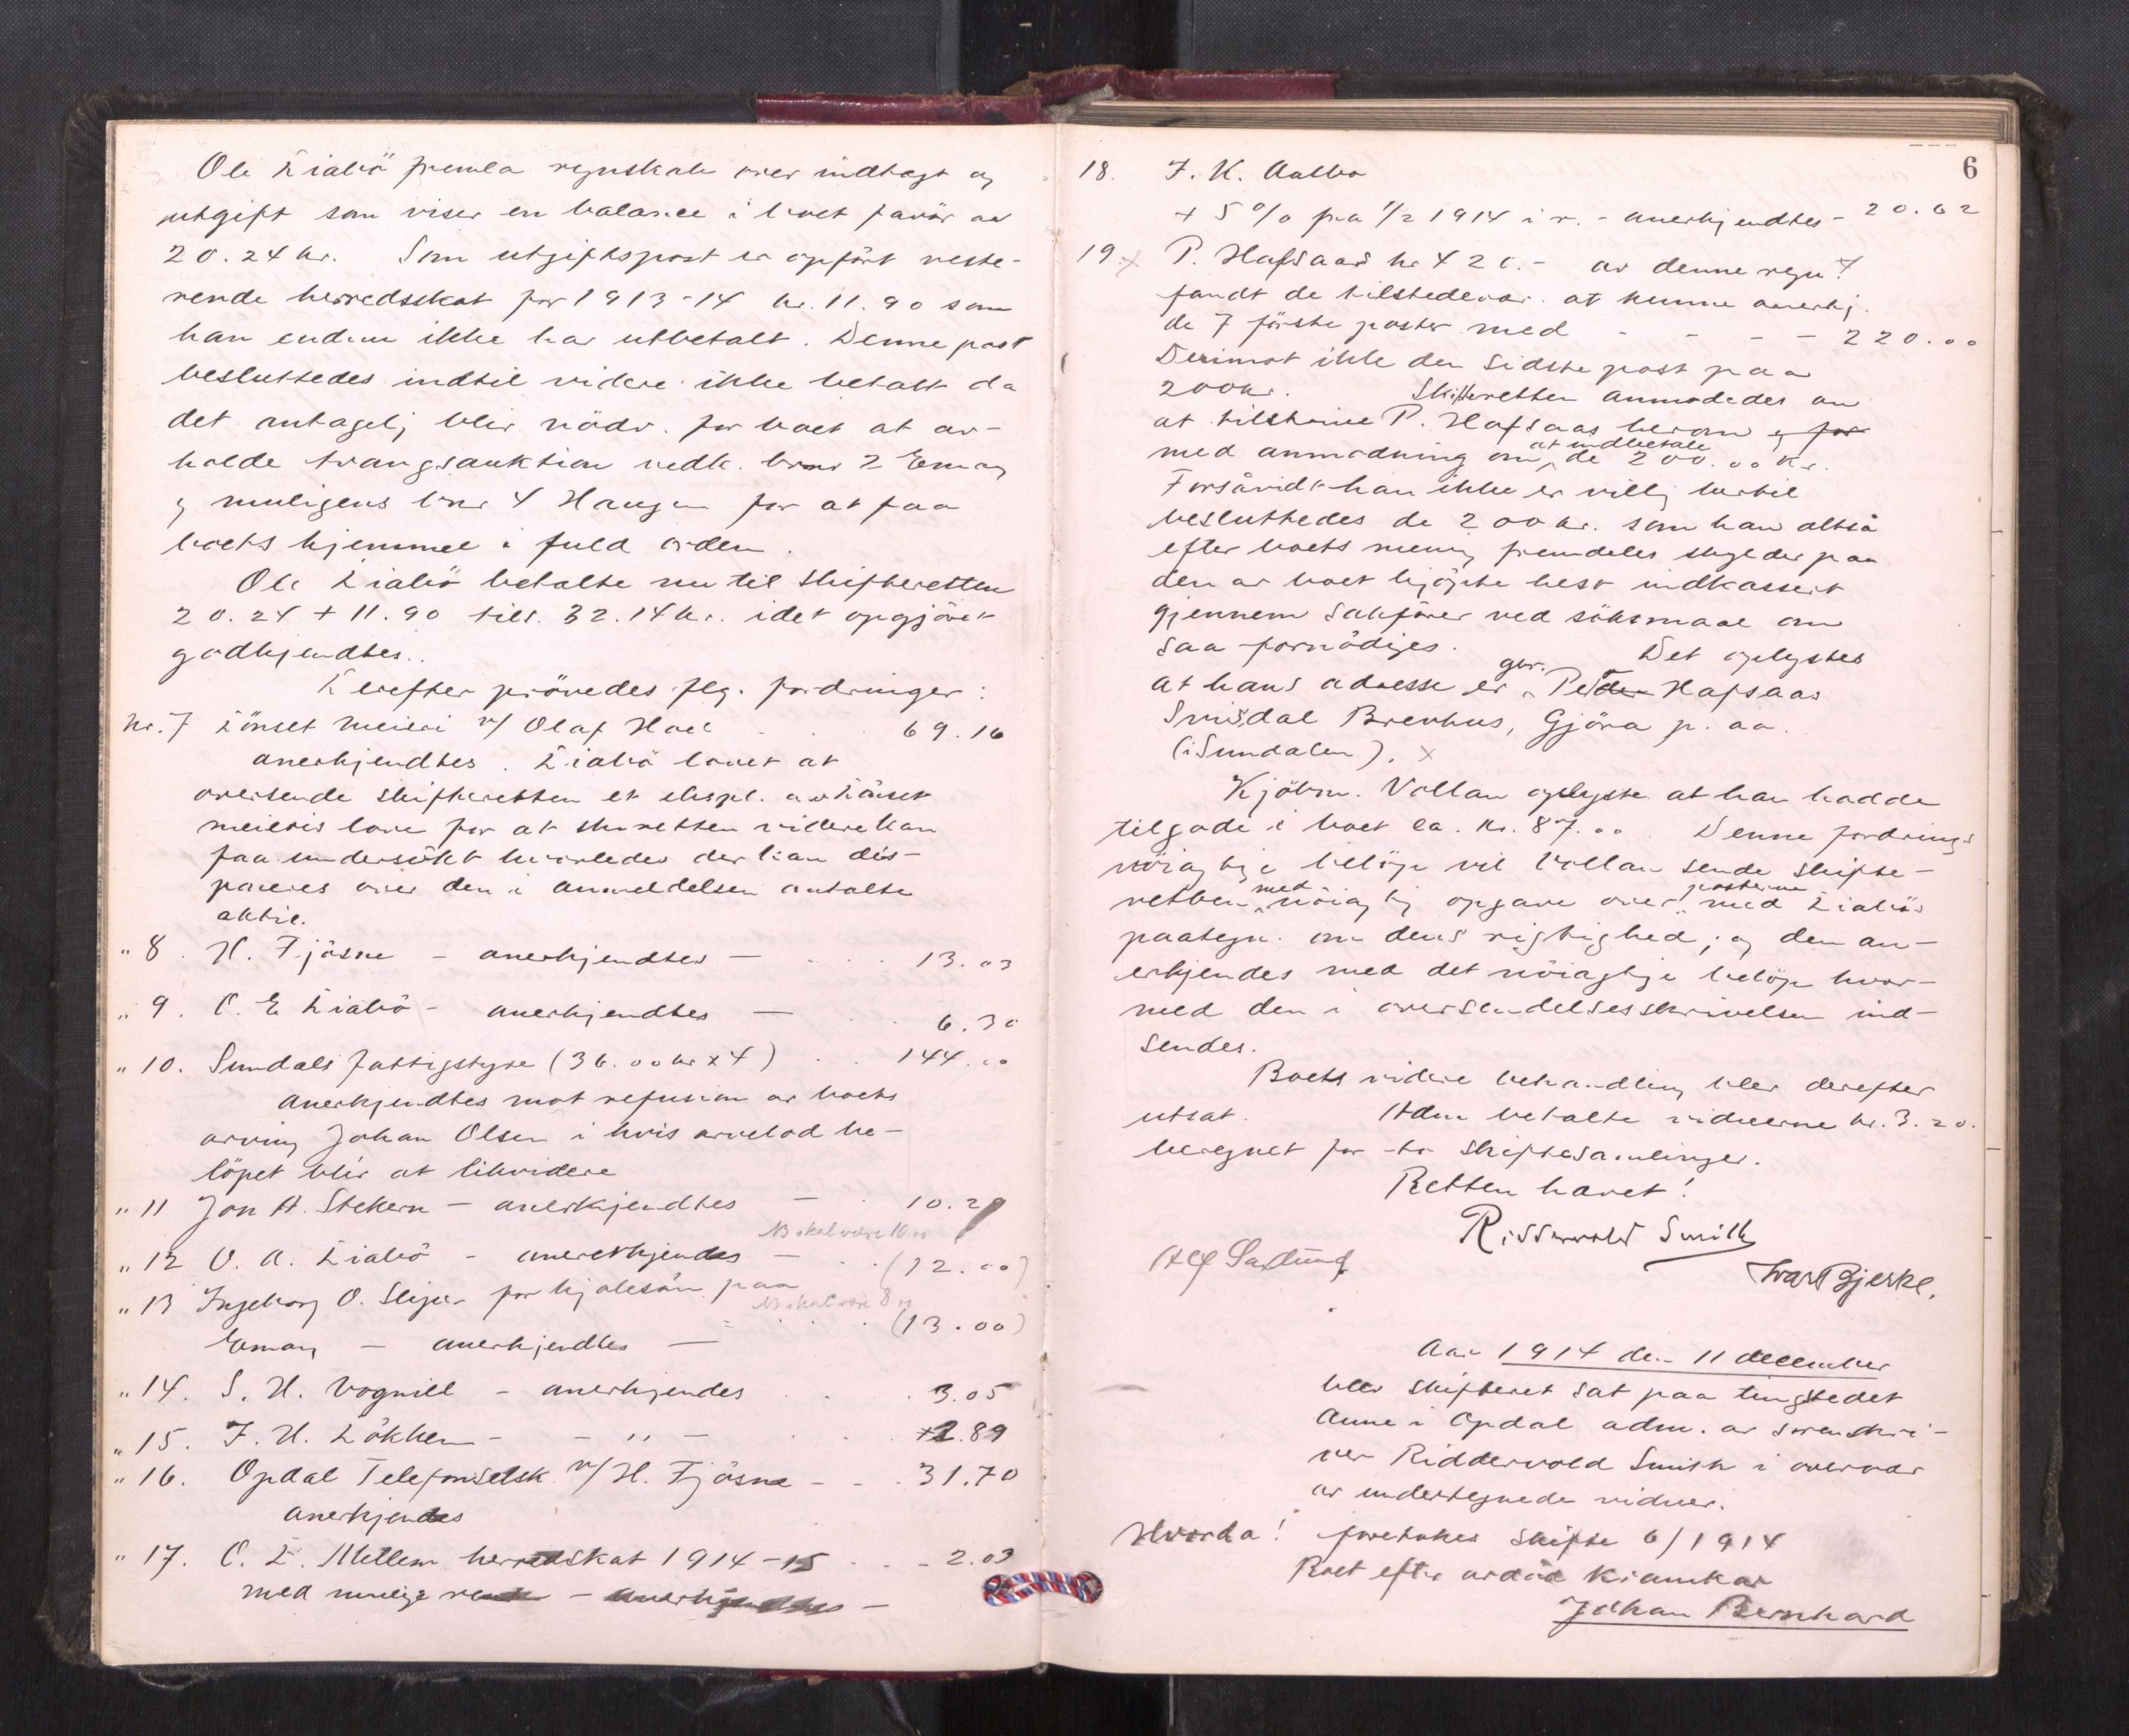 Ole Liabö fremla regnskab over indtægt og
utgift som viser en balance i boet favör av
20.24 kr. Som utgiftspost er opfört reste-
rende herredsskat for 1913-14 kr. 11.90 som
han endnu ikke har utbetalt. Denne post
besluttedes indtil videre ikke betalt da
det antagelig blir nödv. for boet at av-
holde tvangsauktion vedk. bnr 2 Eman
og muligens bnr 4 Haugen for at faa
boets hjemmel i fuld orden.
Ole Liabö betalte nu til skifteretten
20.24 + 11.90 tils. 32.14 kr. idet opgjöret
godkjendtes.
Derefter prövedes flg. fordringer:
Nr. 7 Lönset meieri v/ Olaf Hoel . . 69.16
anerkjendtes. Liabö lovet at
oversende skifteretten et ekspl. av Lönset
meieris love for at skr.retten videre kan
faa undersökt hvorledes der kan dis-
poneres over den i anmeldelsen antalte
aktie.
" 8. H. Fjösne - anerkjendtes - . . . 13.03
" 9. O. E. Liabö - anerkjendtes - . . 6.30
" 10. Sundals fattigstyre (36.00 kr x 4) . . 144.00
Anerkjendtes mot refusion av boets
arving Johan Olsen i hvis arvelod be-
löpet blir at likvidere
" 11 Jon H. Stekern - anerkjendtes - . 10.2
NB skal være 10
" 12 O. A. Liabö - anerkjendes - . . (12.00)
" 13 Ingeborg O. for kjolesöm paa
NB skal være 8
Eman - anerkjendtes - . . . (13.00)
" 14. S. H. Vognill - anerkjendes . . . 3.05
" 15. F. H. Lökken - - " - . . 2.89
" 16. Opdal Telefonselsk v/ H. Fjösne - . . 31.70
anerkjendes
" 17. O. L. Mellem herredskat 1914-15 . . - 2.03
med mulige rente - anerkjendtes -
6
18. F. K. Aalbo
+ 5 % fra 1/2 1914 i r. - anerkjendtes - 20.62
19. x P. Hafsaas kr 420.- av denne regn.
fandt de tilstedevær. at kunne anerkj.
de 7 förste poster med - - - 220.00
Derimot ikke den sidste post paa
200 kr. Skifteretten anmodedes om
at tilskrive P. Hafsaas herom og for
med anmodning om at indbetale de 200.00 Kr.
Forsåvidt han ikke er villig hertil
besluttedes de 200 kr. som han altså
efter boets mening fremdeles skylder paa
den av boet kjöpte hest indkassert
gjennem sakförer ved söksmaal om
saa fornödiges. Det oplystes
at hans adresse er gbr. Peder Hafsaas
Svisdal Brenhus, Gjöra p. aa.
(i Sundalen). x
Kjöbm. Vollan oplyste at han hadde
tilgode i boet ca. kr. 87.00. Denne fordrings
nöiagtige belöp vil Vollan sende skifte-
retten med nöiagtig opgave over posterne med Liabös
paategn. om dens rigtighed; og den an-
erkjendes med det nöiagtige belöp hvor-
med den i oversendelsesskrivelsen ind-
sendes.
Boets videre behandling blev derefter
utsat. Adm. betalte vidnerne kr. 3.20.
beregnet for to skiftesamlinger.
Retten hævet!
Riddervold Smith
Ivar Bjerke.
Aar 1914 den 11 december
blev skifteret sat paa tingstedet
Aune i Opdal adm. av sorenskri-
ver Riddervold Smith i overvær
av undertegnede vidner.
Hvorda! foretokes skifte 6/1914
Boet efter avdöd Kramkar
Johan Bernhard